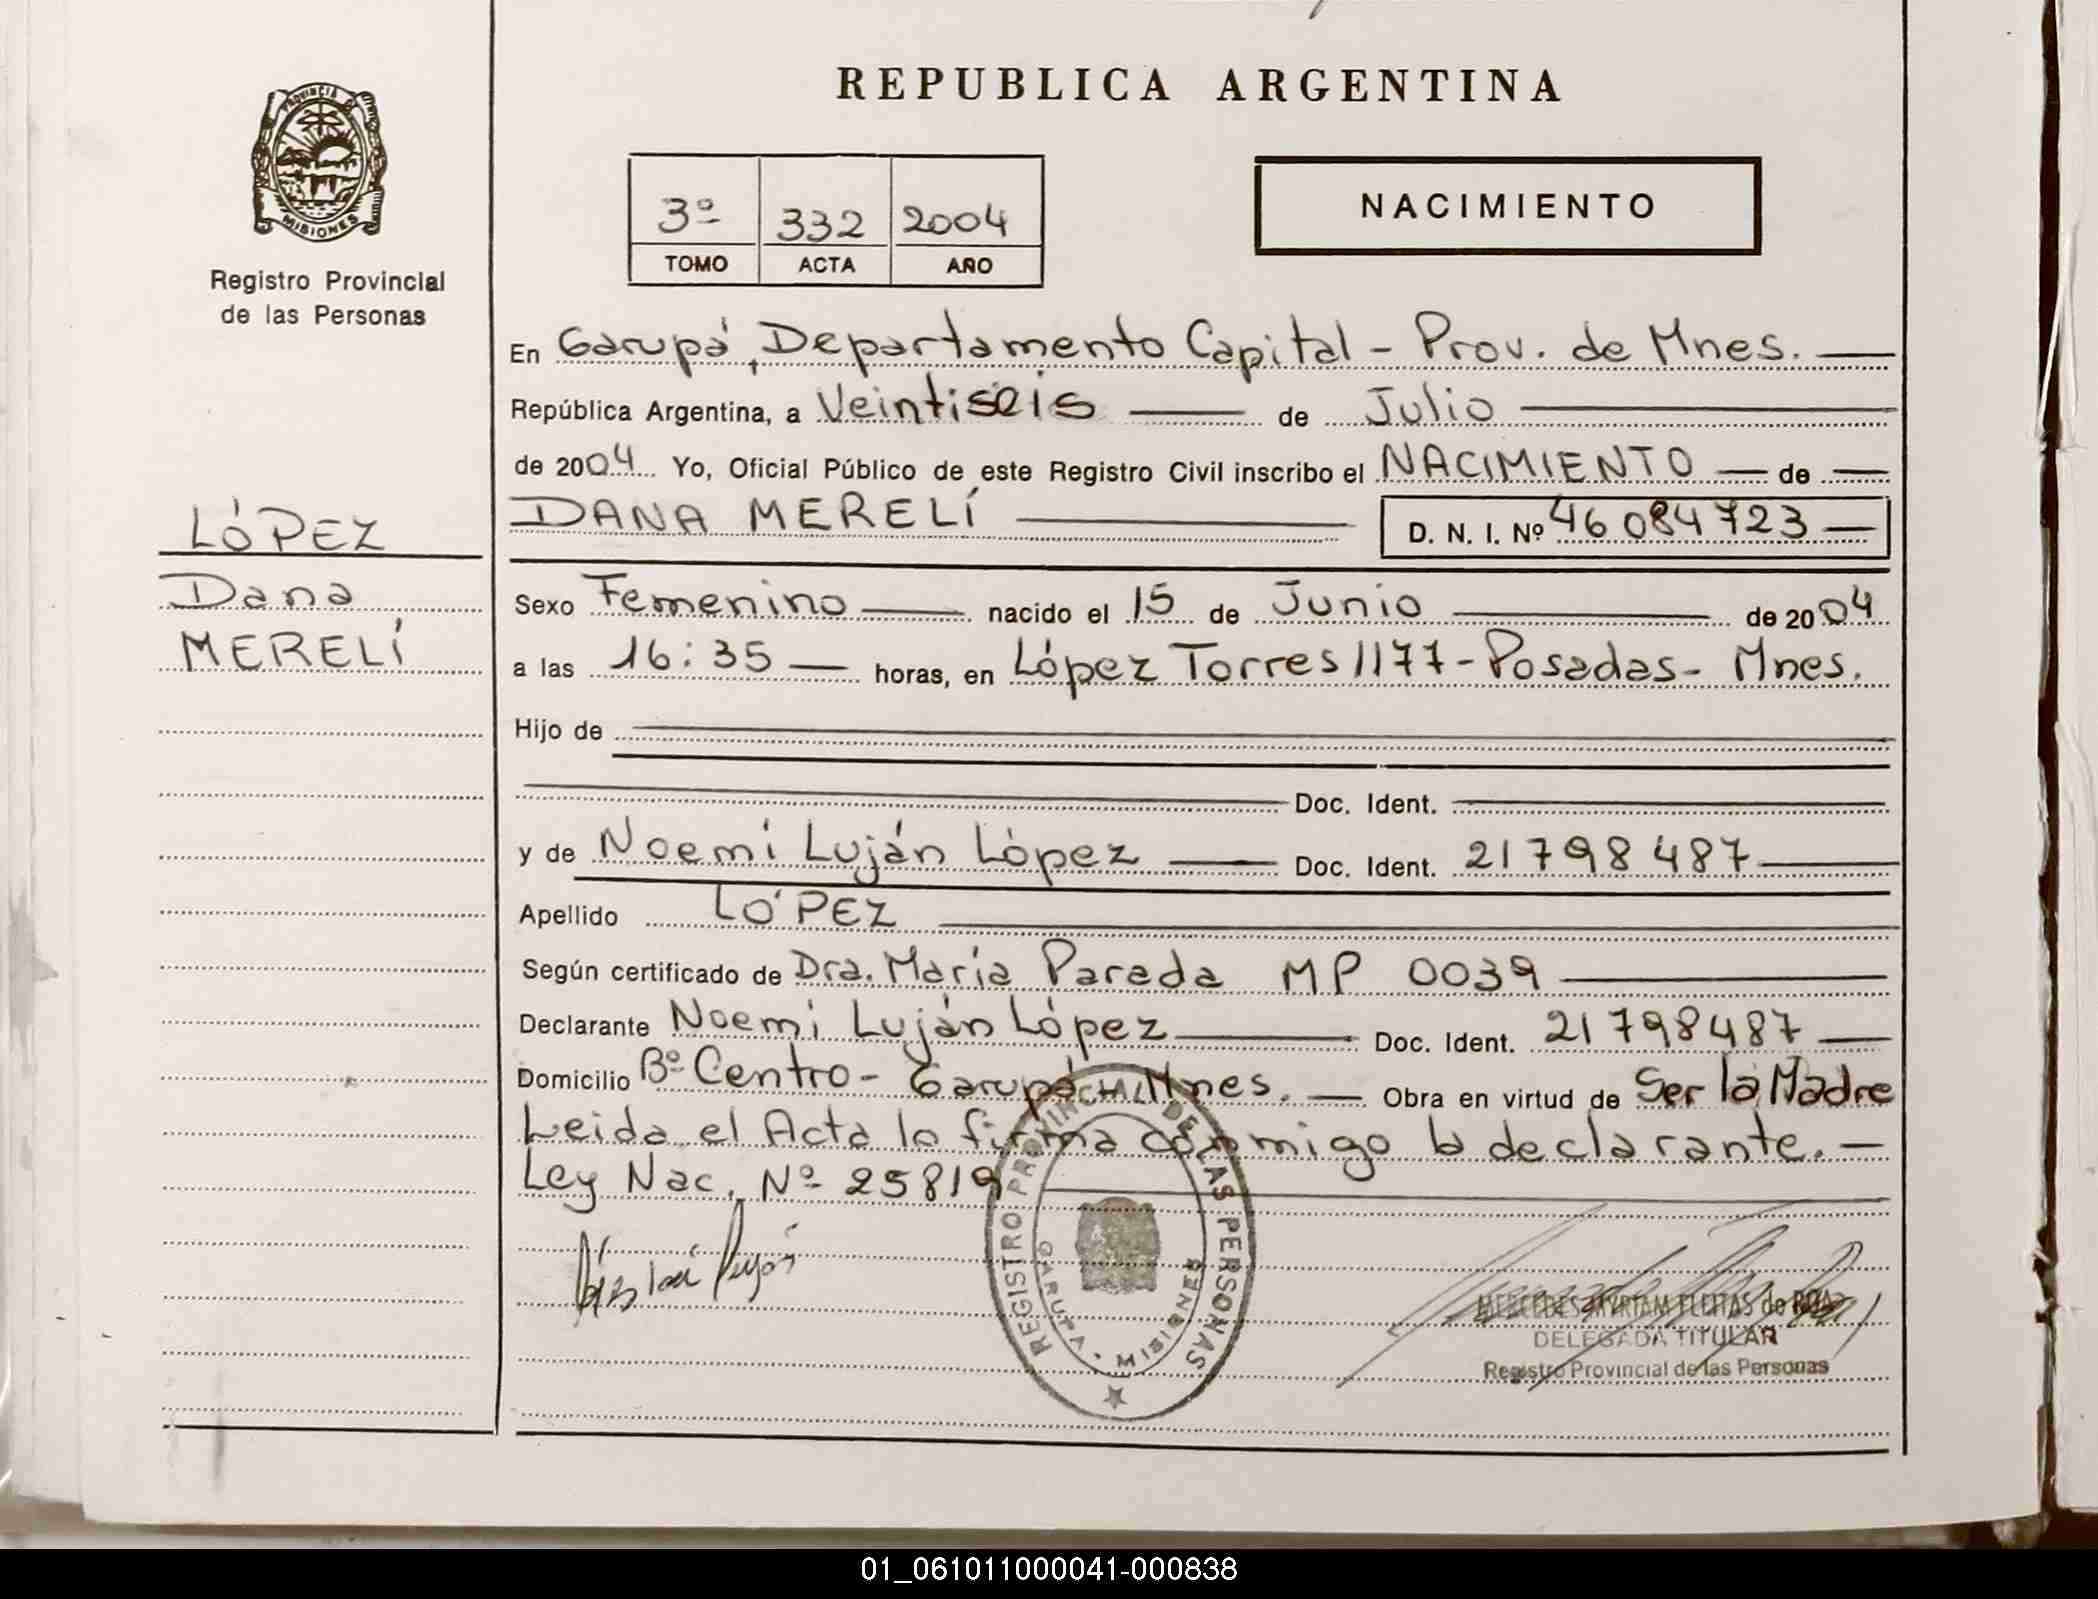 REPUBLICA ARGENTINA
PROVINCIA DE
MISIONES
Registro Provincial
de las Personas
3º 332 2004
TOMO ACTA AÑO
NACIMIENTO
En Garupá, Departamento Capital - Prov. de Mnes.
República Argentina, a Veintiseis de Julio
de 2004 Yo, Oficial Público de este Registro Civil inscribo el NACIMIENTO de
DANA MERELÍ D. N. I. Nº 46 084 723
LÓPEZ
Dana
MERELÍ
Sexo Femenino nacido el 15 de Junio de 2004
a las 16:35 horas, en López Torres 1177 - Posadas - Mnes.
Hijo de
Doc. Ident.
y de Noemi Luján López Doc. Ident. 21798487
Apellido LÓPEZ
Según certificado de Dra. María Parada MP 0039
Declarante Noemi Luján López Doc. Ident. 21798487
Domicilio Bº Centro - Garupá - Mnes. Obra en virtud de Ser la Madre
Leida el Acta la firma conmigo la declarante.
Ley Nac. Nº 25819
REGISTRO PROVINCIAL DE LAS PERSONAS
GARUPA • MISIONES
MERCEDES MYRIAM FLEITAS de ROA
DELEGADA TITULAR
Registro Provincial de las Personas
01_061011000041-000838